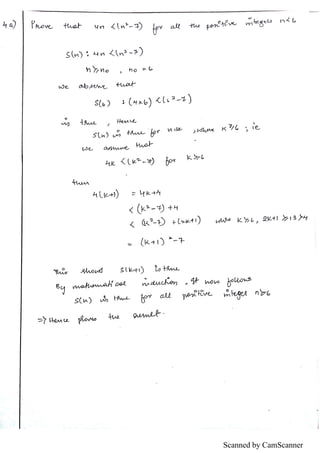 4a) Prove that 4n <(n²-7) for all the positive integers n<6
S(n) : 4n <(n²-7)
n≥no , no = 6
we observe that
S(6) : (4x6) <(6²-7)
is true , Hence
S(n) is true for n=k , where k≥6 ; ie
we assume that
4k <(k²-7) for k≥6
then
4(k+1) = 4k+4
< (k²-7) +4
< (k²-7) +(2k+1) while k≥6, 2k+1 ≥13 >4
= (k+1)²-7
This shows S(k+1) is true
By mathematical induction . It now follows
S(n) is true for all positive integer n≥6
=> Hence proves the result.
Scanned by CamScanner